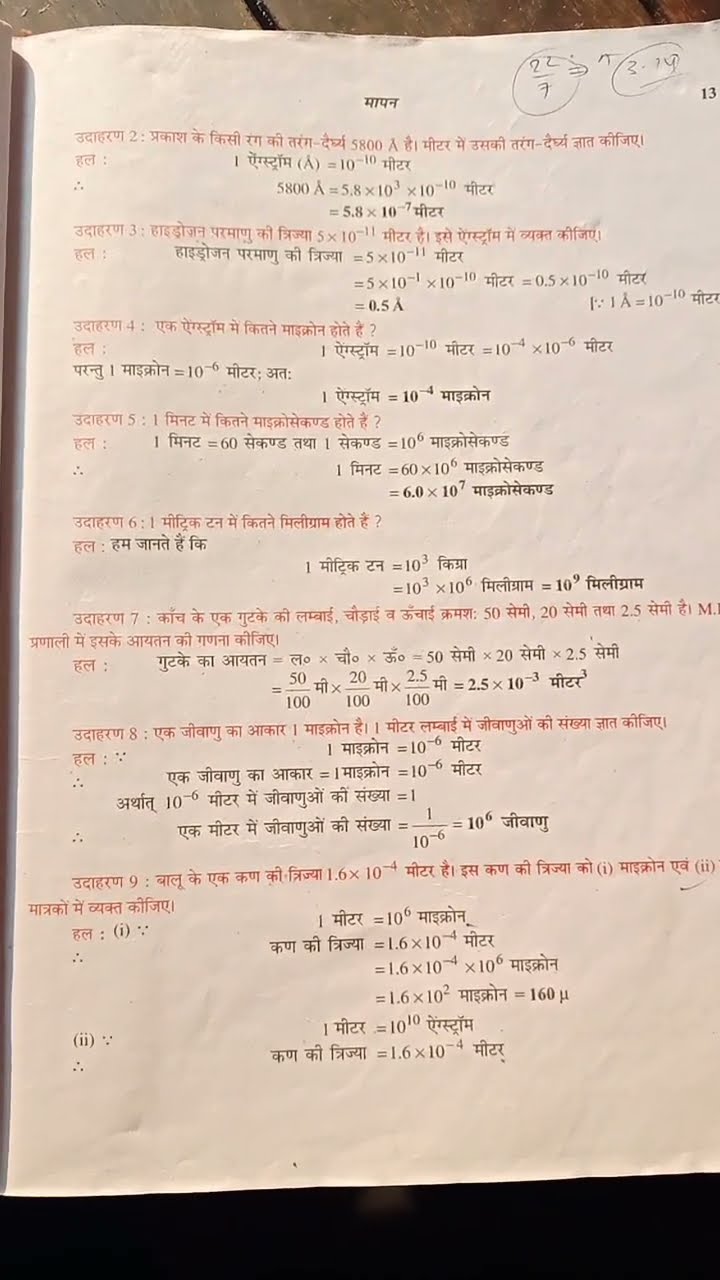 22/7 ⇒ π 3.14
मापन
13
उदाहरण 2 : प्रकाश के किसी रंग की तरंग-दैर्घ्य 5800 Å है। मीटर में उसकी तरंग-दैर्घ्य ज्ञात कीजिए।
हल : 1 ऐंग्स्ट्रॉम (Å) = 10⁻¹⁰ मीटर
∴ 5800 Å = 5.8 × 10³ × 10⁻¹⁰ मीटर
= 5.8 × 10⁻⁷ मीटर
उदाहरण 3 : हाइड्रोजन परमाणु की त्रिज्या 5 × 10⁻¹¹ मीटर है। इसे ऐंग्स्ट्रॉम में व्यक्त कीजिए।
हल : हाइड्रोजन परमाणु की त्रिज्या = 5 × 10⁻¹¹ मीटर
= 5 × 10⁻¹ × 10⁻¹⁰ मीटर = 0.5 × 10⁻¹⁰ मीटर
= 0.5 Å [∵ 1 Å = 10⁻¹⁰ मीटर
उदाहरण 4 : एक ऐंग्स्ट्रॉम में कितने माइक्रोन होते हैं ?
हल : 1 ऐंग्स्ट्रॉम = 10⁻¹⁰ मीटर = 10⁻⁴ × 10⁻⁶ मीटर
परन्तु 1 माइक्रोन = 10⁻⁶ मीटर; अतः
1 ऐंग्स्ट्रॉम = 10⁻⁴ माइक्रोन
उदाहरण 5 : 1 मिनट में कितने माइक्रोसेकण्ड होते हैं ?
हल : 1 मिनट = 60 सेकण्ड तथा 1 सेकण्ड = 10⁶ माइक्रोसेकण्ड
∴ 1 मिनट = 60 × 10⁶ माइक्रोसेकण्ड
= 6.0 × 10⁷ माइक्रोसेकण्ड
उदाहरण 6 : 1 मीट्रिक टन में कितने मिलीग्राम होते हैं ?
हल : हम जानते हैं कि
1 मीट्रिक टन = 10³ किग्रा
= 10³ × 10⁶ मिलीग्राम = 10⁹ मिलीग्राम
उदाहरण 7 : काँच के एक गुटके की लम्बाई, चौड़ाई व ऊँचाई क्रमशः 50 सेमी, 20 सेमी तथा 2.5 सेमी है।
प्रणाली में इसके आयतन की गणना कीजिए।
हल : गुटके का आयतन = ल० × चौ० × ऊँ० = 50 सेमी × 20 सेमी × 2.5 सेमी
= 50/100 मी × 20/100 मी × 2.5/100 मी = 2.5 × 10⁻³ मीटर³
उदाहरण 8 : एक जीवाणु का आकार 1 माइक्रोन है। 1 मीटर लम्बाई में जीवाणुओं की संख्या ज्ञात कीजिए।
हल : ∵ 1 माइक्रोन = 10⁻⁶ मीटर
∴ एक जीवाणु का आकार = 1 माइक्रोन = 10⁻⁶ मीटर
अर्थात् 10⁻⁶ मीटर में जीवाणुओं की संख्या = 1
∴ एक मीटर में जीवाणुओं की संख्या = 1/10⁻⁶ = 10⁶ जीवाणु
उदाहरण 9 : बालू के एक कण की त्रिज्या 1.6 × 10⁻⁴ मीटर है। इस कण की त्रिज्या को (i) माइक्रोन एवं (ii)
मात्रकों में व्यक्त कीजिए।
हल : (i) ∵ 1 मीटर = 10⁶ माइक्रोन
∴ कण की त्रिज्या = 1.6 × 10⁻⁴ मीटर
= 1.6 × 10⁻⁴ × 10⁶ माइक्रोन
= 1.6 × 10² माइक्रोन = 160 μ
(ii) ∵ 1 मीटर = 10¹⁰ ऐंग्स्ट्रॉम
∴ कण की त्रिज्या = 1.6 × 10⁻⁴ मीटर